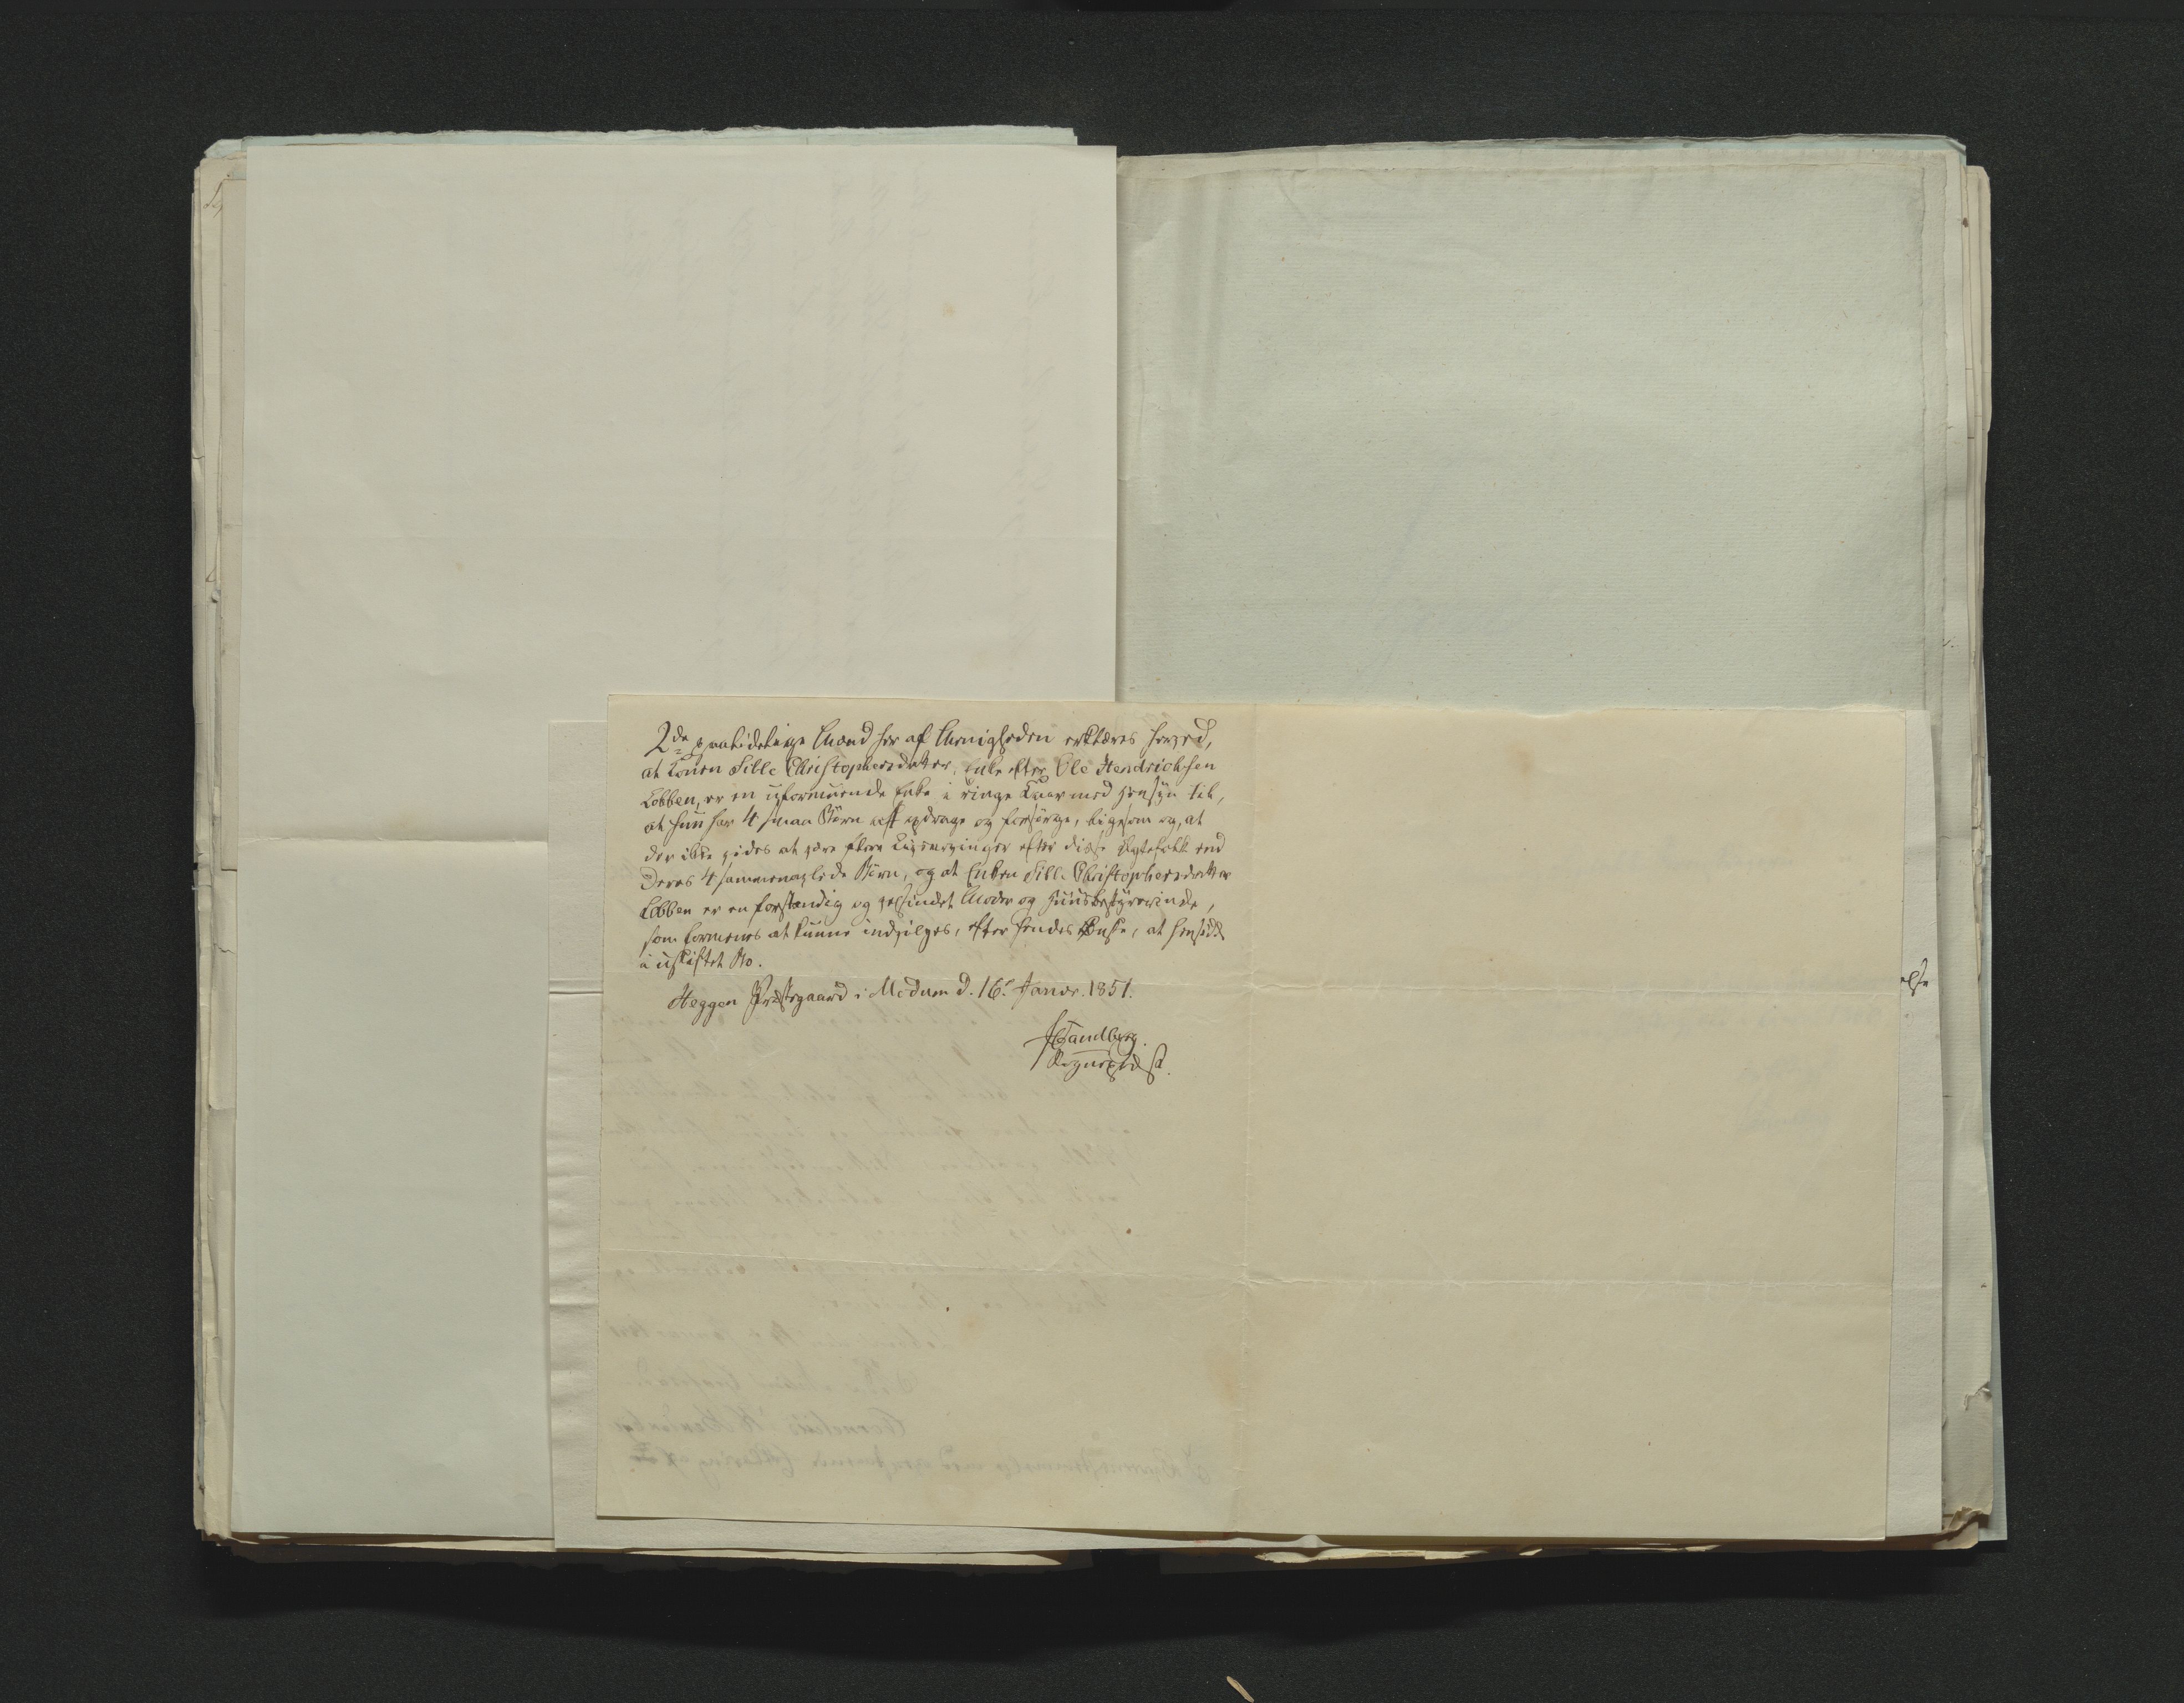 2de paalidelige Mænd her af Menigheden erklæres herved,
at Konen Sille Christophersdatter, Enke efter Ole Hendrichsen
Lobben, er en uformuende Enke i ringe Kaar med Hensyn til,
at hun har 4 smaa Børn at opdrage og forsørge, ligesom og, at
der ikke vides at være flere Livsarvinger efter disse Ægtefolk end
Deres 4 sammenavlede Børn, og at Enken Sille Christophersdatter
Lobben er en forstandig og velsindet Moder og Huusbestyrerinde,
som formenes at kunne indvilges, efter hendes Ønske, at hensidde
i uskiftet Bo.
Heggen Præstegaard i Modum d. 16de Januar. 1851.
Sandberg.
Sognepræst.
else